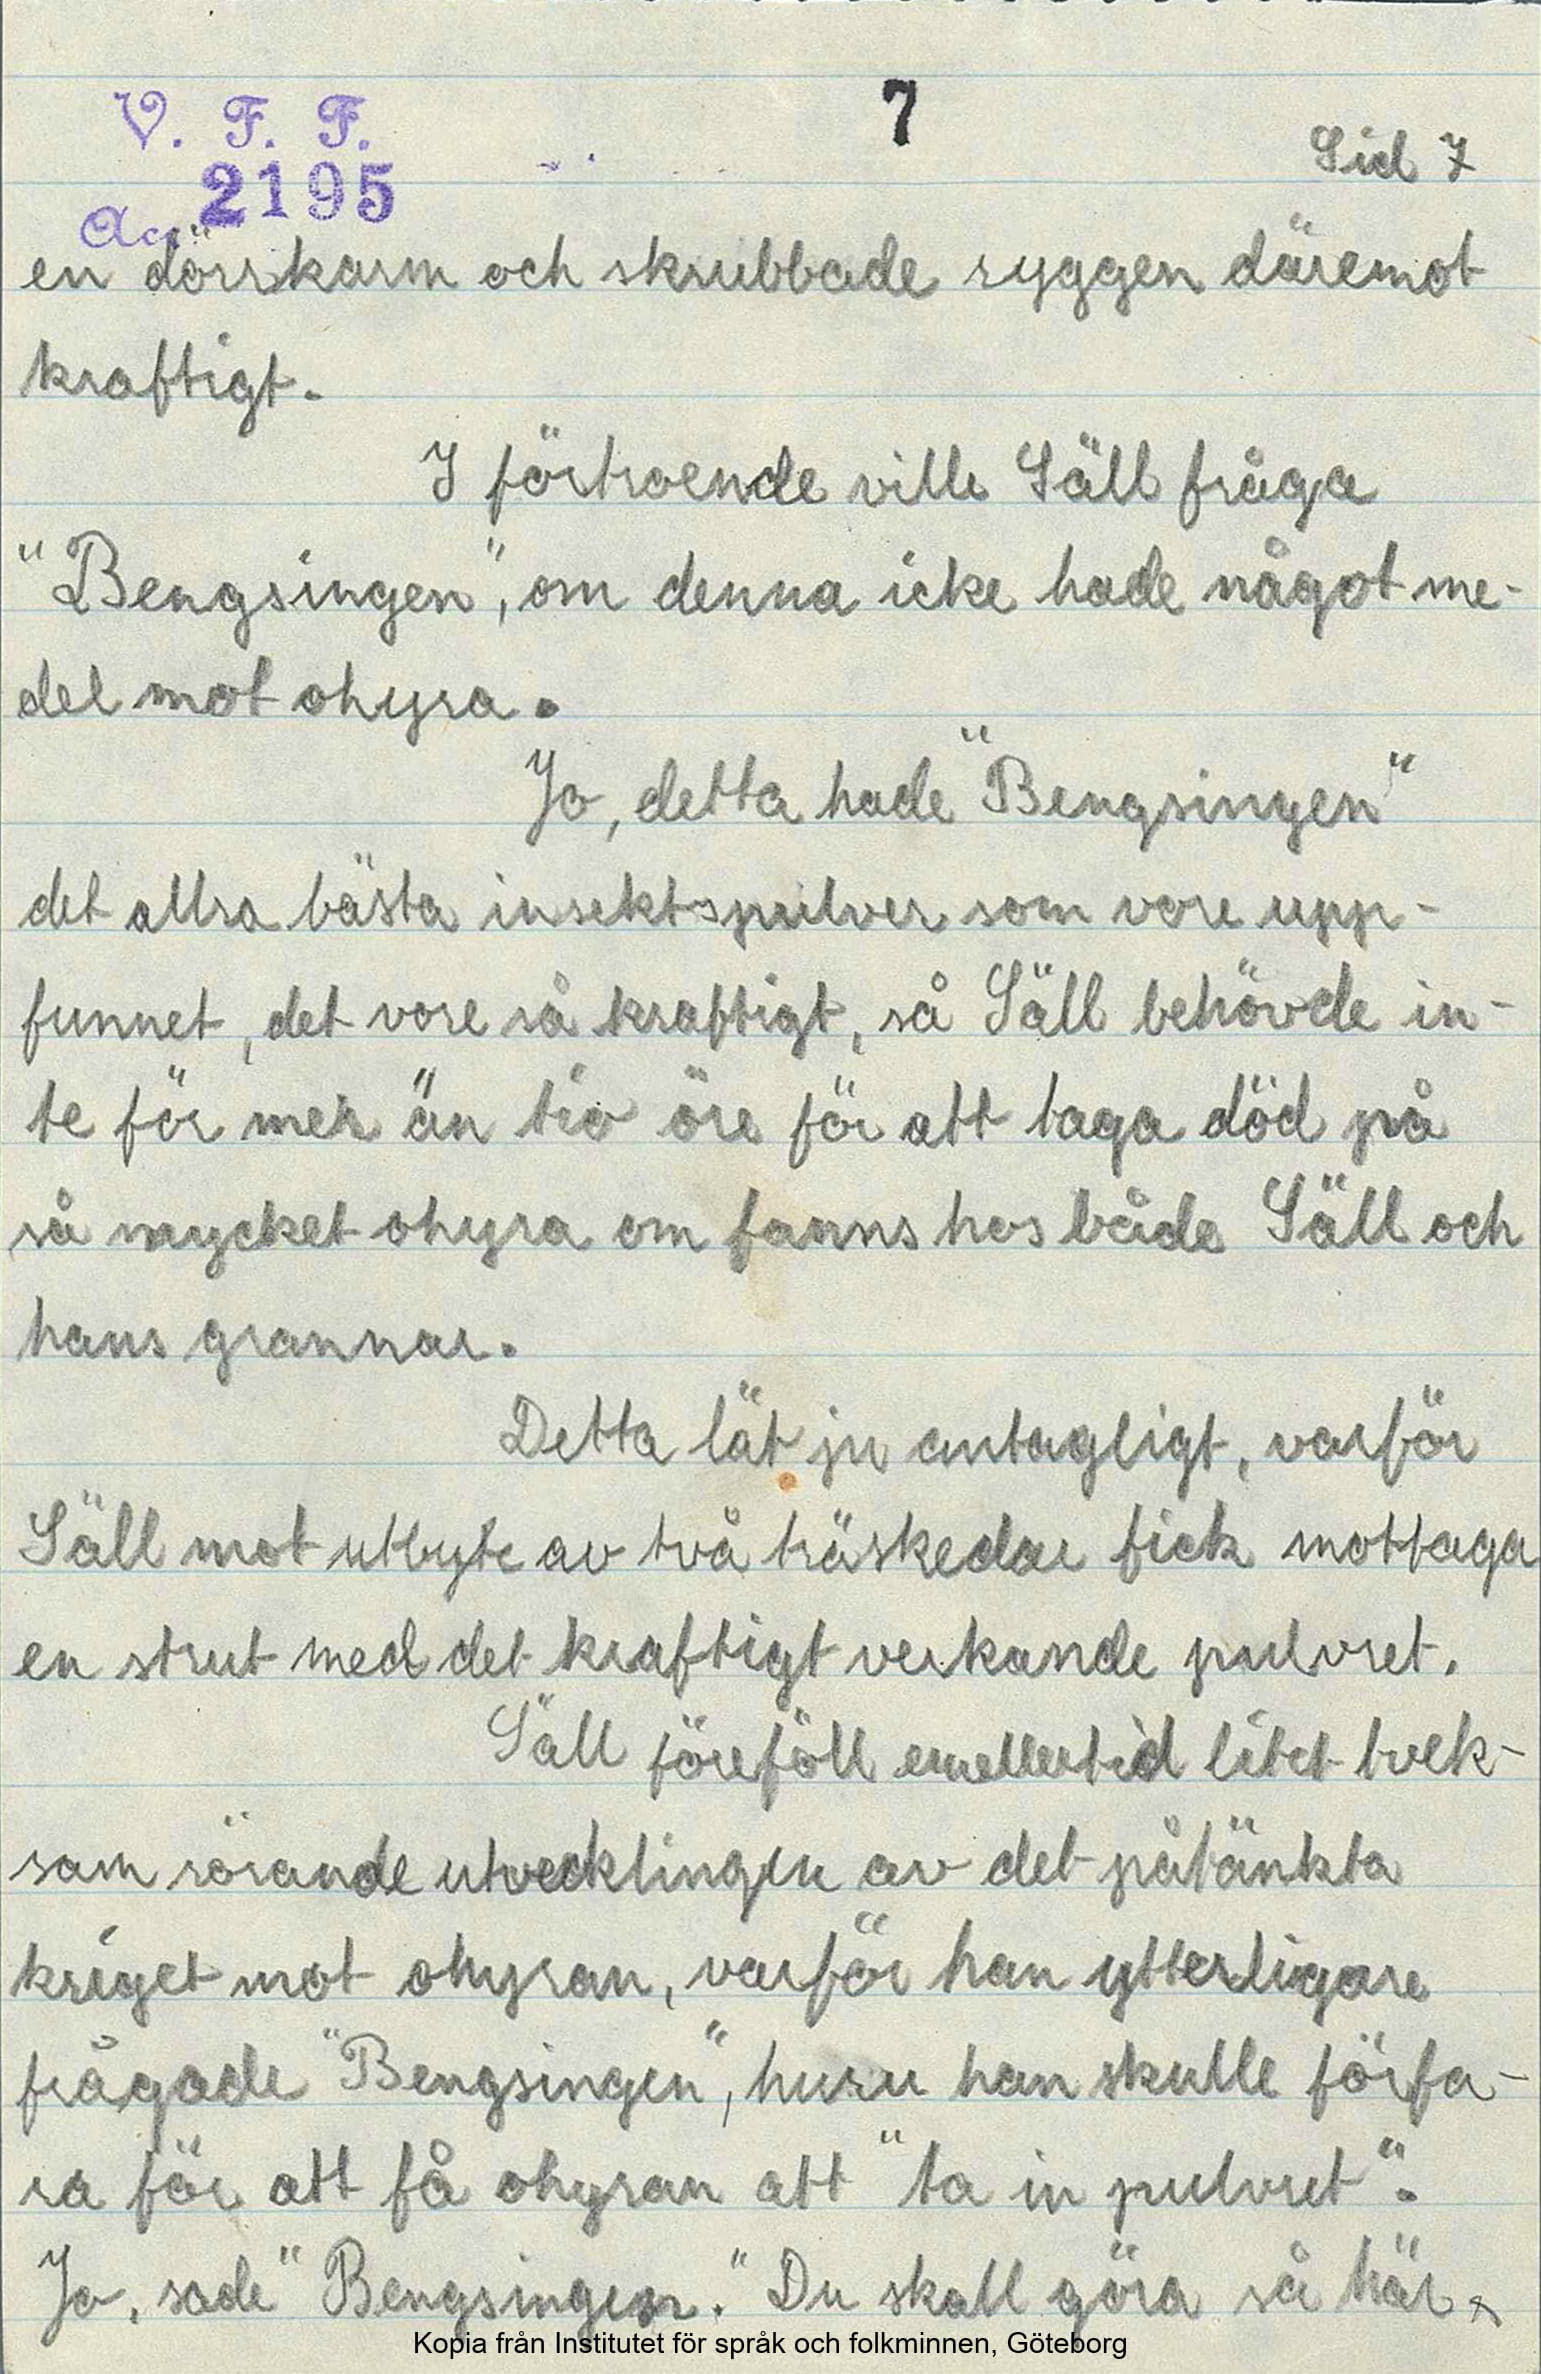 V. F. F.
7
Sid 7
Acc. 2195
en dörrkarm och skrubbade ryggen däremot
kraftigt.
I förtroende ville Säll fråga
"Bengsingen", om denna icke hade något me-
del mot ohyra.
Jo, detta hade "Bengsingen"
det allra bästa insektspulver som vore upp-
funnet, det vore så kraftigt, så Säll behövde in-
te för mer än tio öre för att taga död på
så mycket ohyra om fanns hos både Säll och
hans grannar.
Detta lät ju antagligt, varför
Säll mot utbyte av två träskedar fick mottaga
en strut med det kraftigt verkande pulvret.
Säll föreföll emellertid litet tvek-
sam rörande utvecklingen av det påtänkta
kriget mot ohyran, varför han ytterligare
frågade "Bengsingen", huru han skulle förfa-
ra för att få ohyran att "ta in pulvret".
Jo, sade "Bengsingen." Du skall göra så här,
Kopia från Institutet för språk och folkminnen, Göteborg